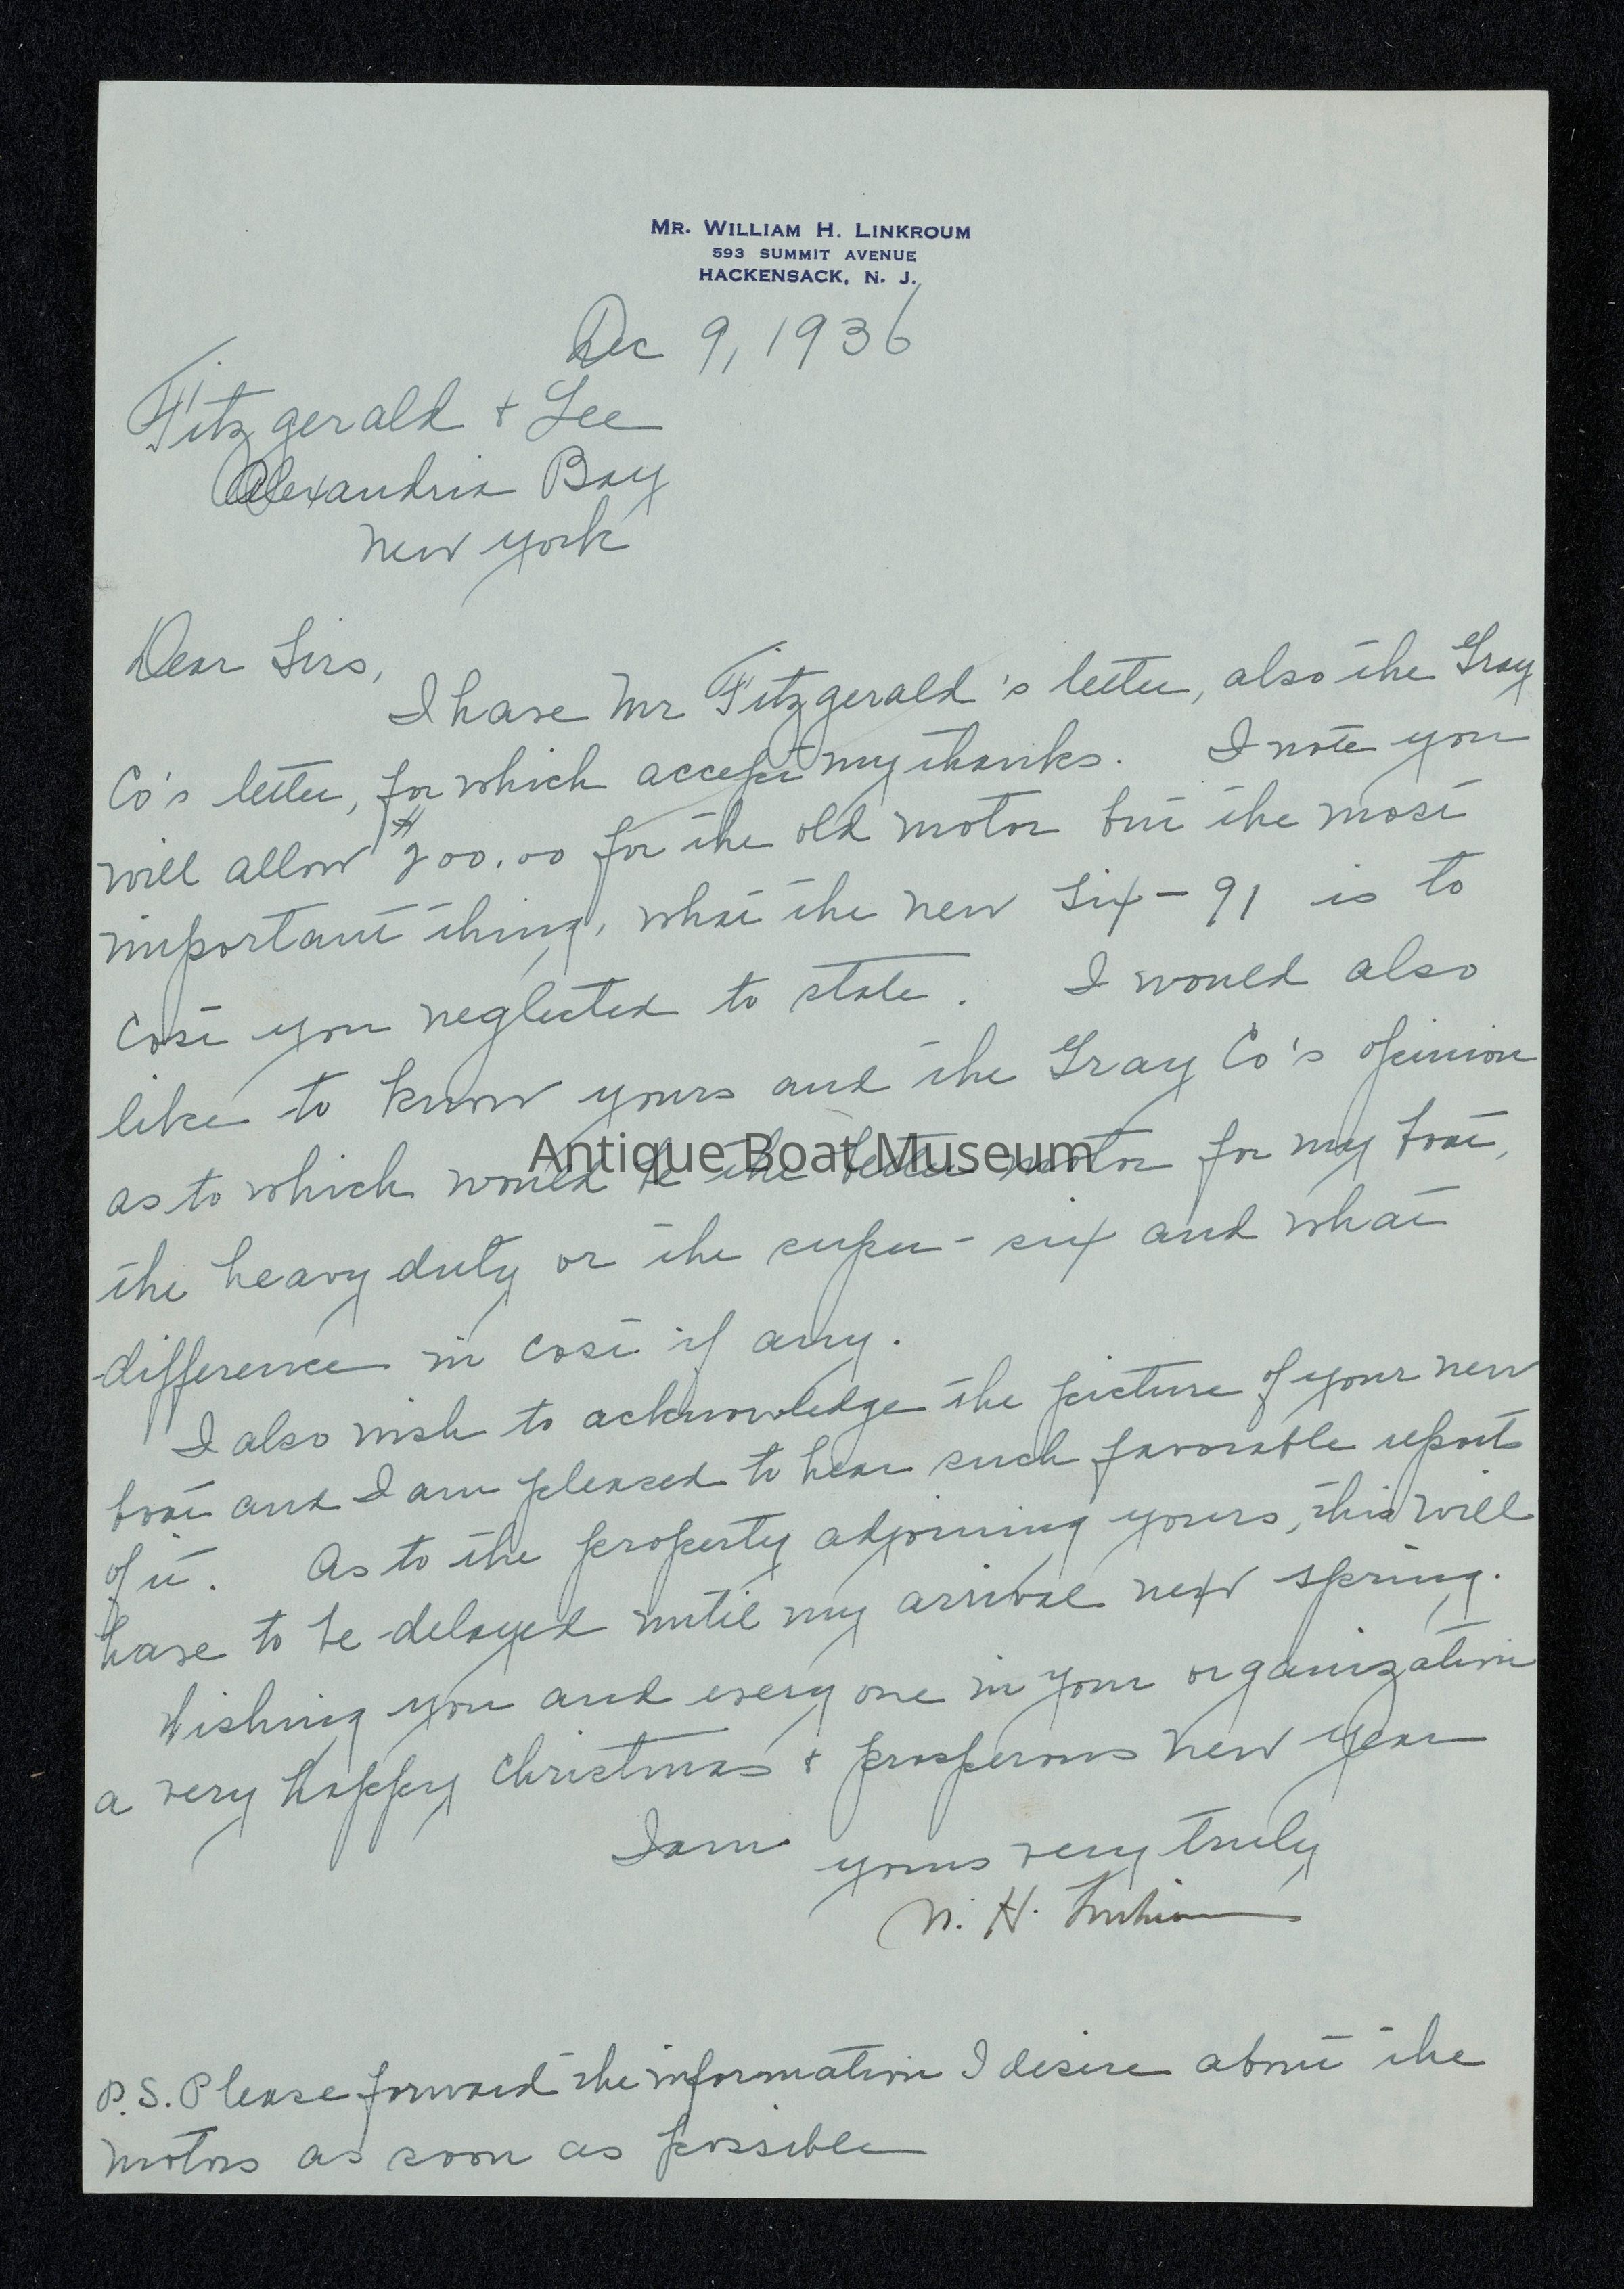 MR. WILLIAM H. LINKROUM
593 SUMMIT AVENUE
HACKENSACK, N. J.
Dec 9, 1936
Fitzgerald + Lee
Alexandria Bay
New York
Dear Sirs,
I have Mr Fitzgerald's letter, also the Gray
Co's letter, for which accept my thanks. I note you
will allow $200.00 for the old motor but the most
important thing, what the new Six-91 is to
cost you neglected to state. I would also
like to know yours and the Gray Co's opinion
as to which would be the better motor for my boat,
the heavy duty or the super-six and what
difference in cost if any.
I also wish to acknowledge the picture of your new
boat and I am pleased to hear such favorable reports
of it. As to the property adjoining yours, this will
have to be delayed until my arrival next spring.
Wishing you and every one in your organization
a very happy Christmas + prosperous New Year
I am yours very truly
W. H. Linkroum
P.S. Please forward the information I desire about the
motors as soon as possible
Antique Boat Museum